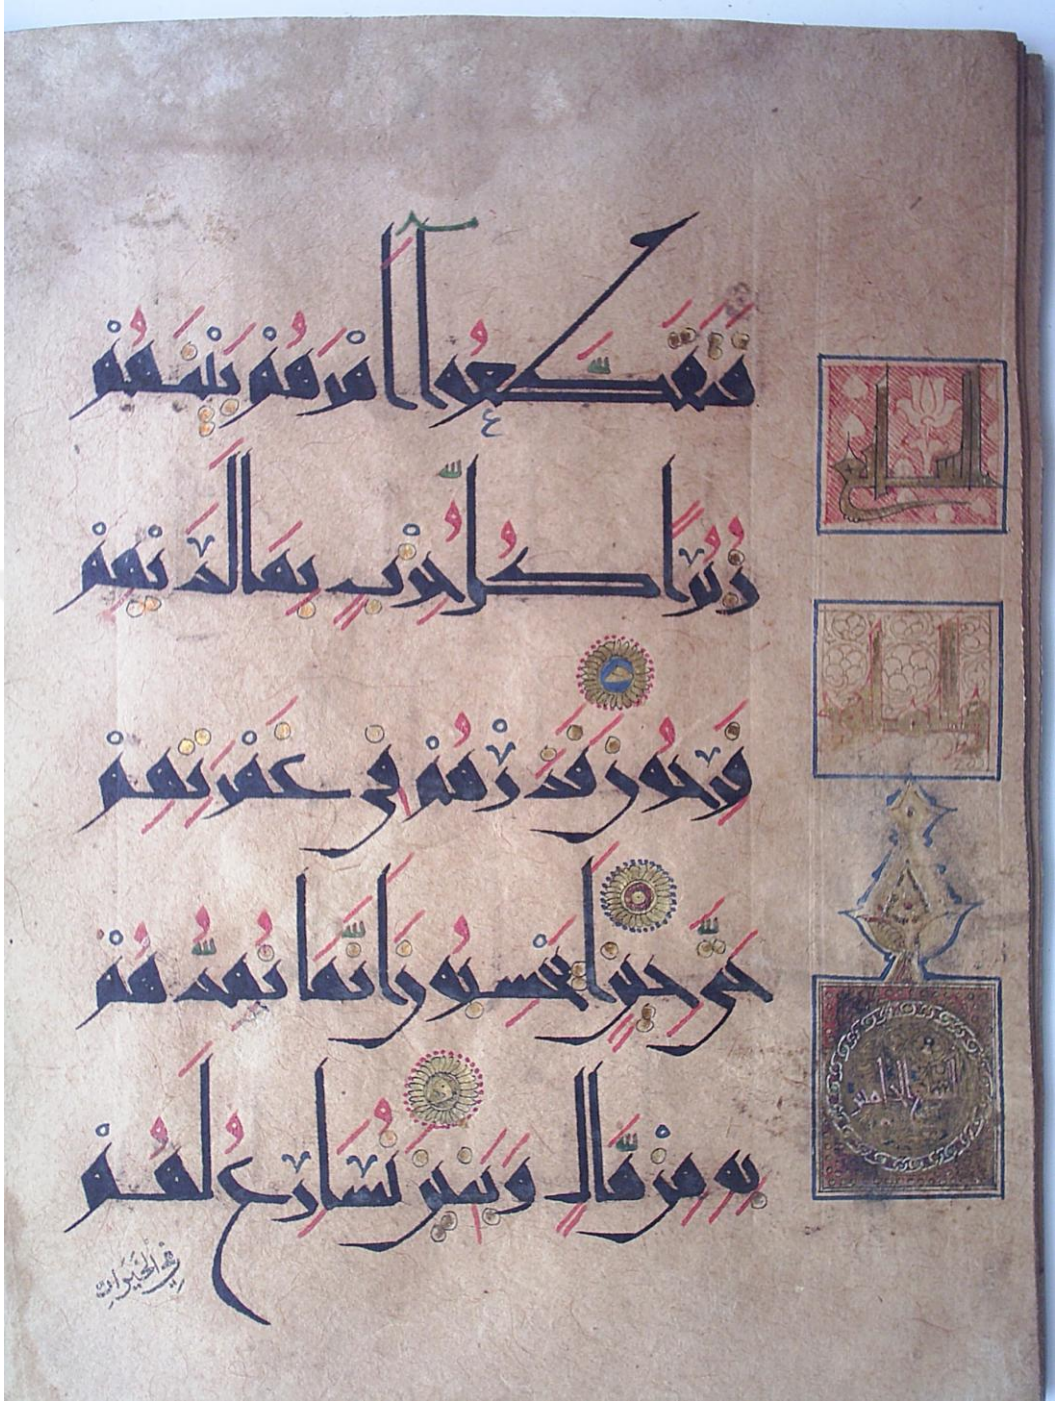 فَتَقَطَّعُوٓا أَمْرَهُمْ بَيْنَهُمْ
زُبُرًا كُلُّ حِزْبٍ بِمَا لَدَيْهِمْ
فَرِحُونَ فَذَرْهُمْ فِي غَمْرَتِهِمْ
حَتَّى حِينٍ أَيَحْسَبُونَ أَنَّمَا نُمِدُّهُمْ
بِهِ مِنْ مَالٍ وَبَنِينَ نُسَارِعُ لَهُمْ
فِي الْخَيْرَاتِ